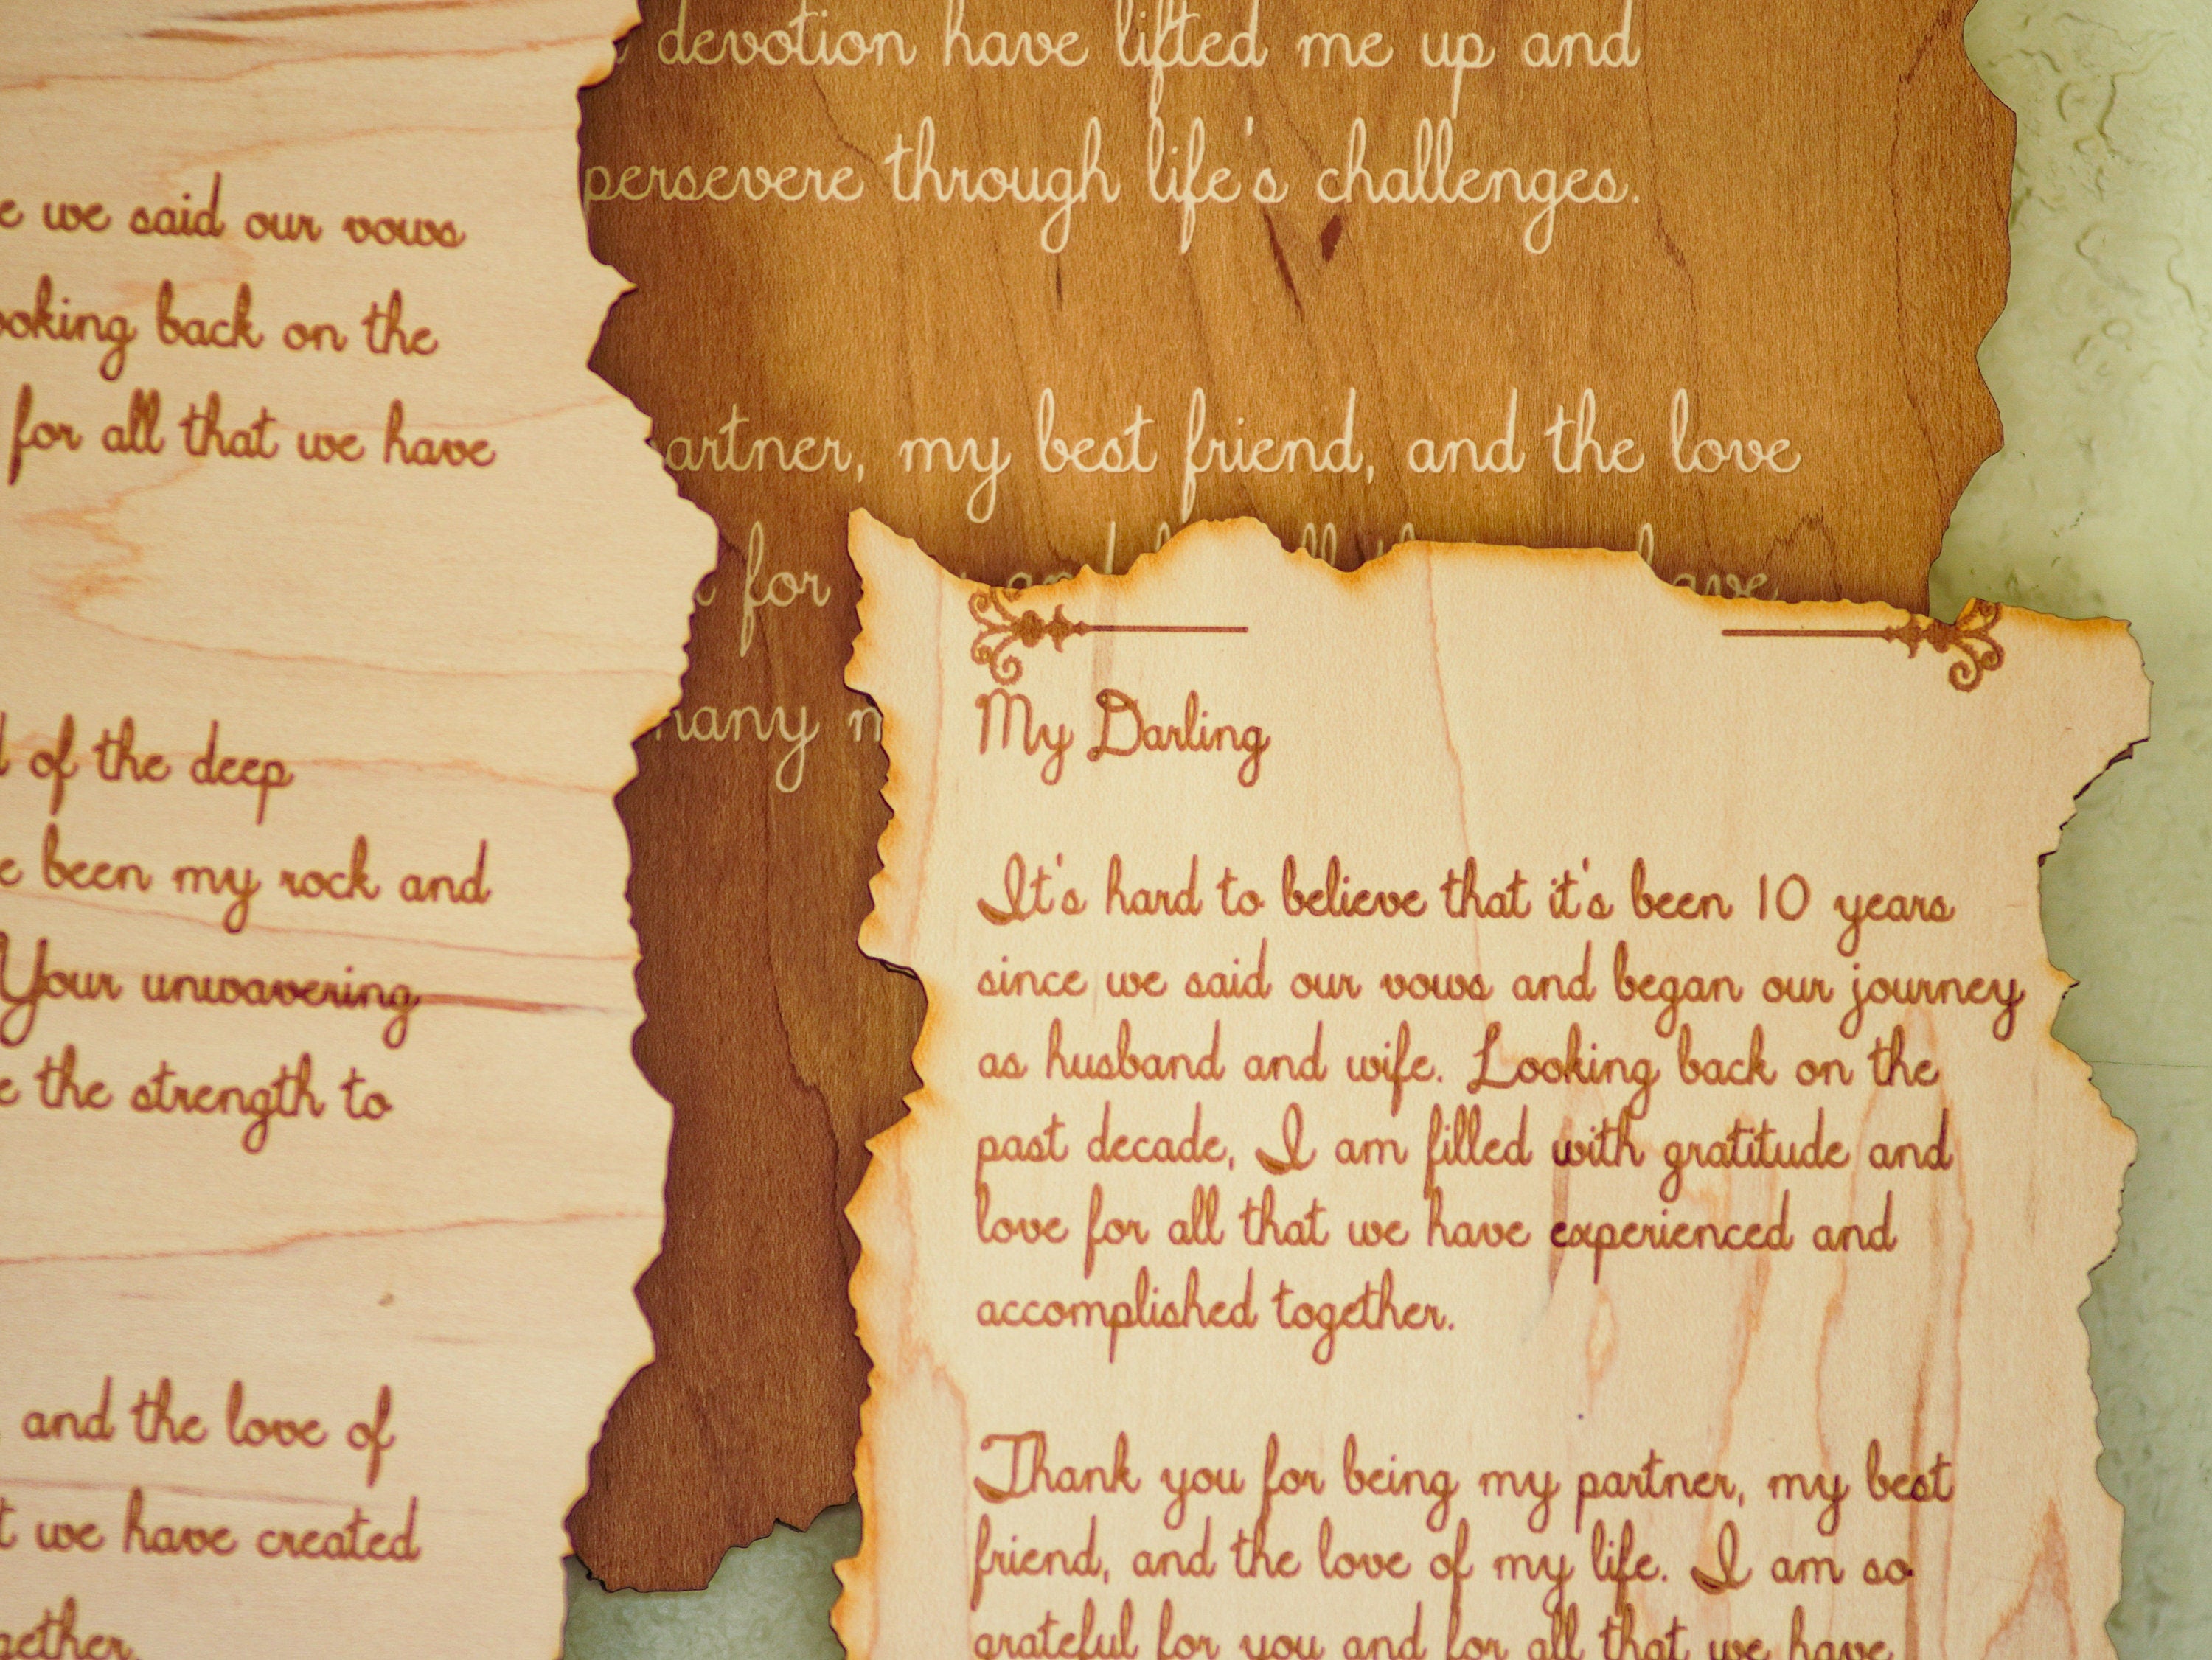 e we said our vows
ooking back on the
for all that we have
d of the deep
e been my rock and
Your unwavering
e the strength to
and the love of
t we have created
gether.
devotion have lifted me up and
persevere through life's challenges.
artner, my best friend, and the love
for
have
many
My Darling
It's hard to believe that it's been 10 years
since we said our vows and began our journey
as husband and wife. Looking back on the
past decade, I am filled with gratitude and
love for all that we have experienced and
accomplished together.
Thank you for being my partner, my best
friend, and the love of my life. I am so
grateful for you and for all that we have